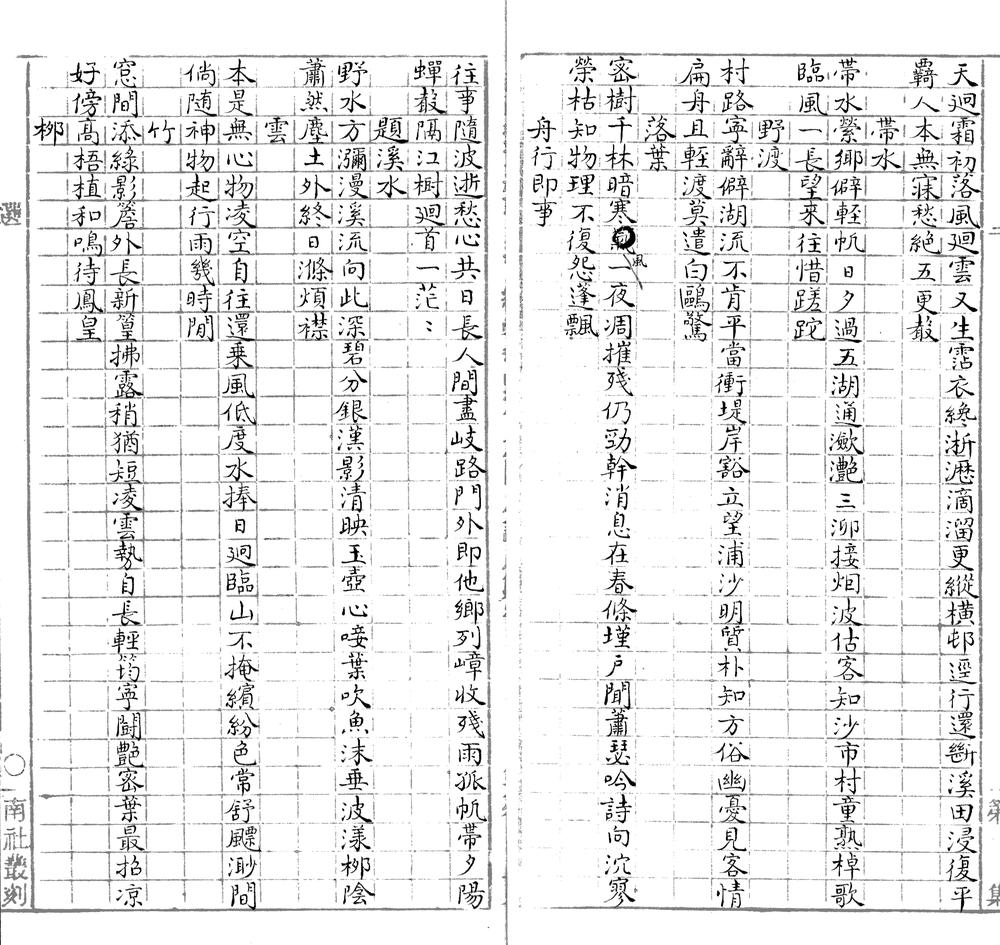 天迴霜初落風迴雲又生霑衣纔淅瀝滴溜更縱橫邨逕行還斷溪田浸復平
覉人本無寐愁絕五更聲
帶水
帶水縈鄉僻輕帆日夕過五湖通瀲灧三泖接烟波估客知沙市村童熟棹歌
臨風一長望來往惜蹉跎
野渡
村路寧辭僻湖流不肯平當衝堤岸豁立望浦沙明質朴知方俗幽憂見客情
扁舟且輕渡莫遣白鷗驚
落葉
密樹千林暗寒風一夜凋摧殘仍勁幹消息在春條墐戶聞蕭瑟吟詩向沉寥
榮枯知物理不復怨蓬飄
舟行即事
往事隨波逝愁心共日長人間盡岐路門外即他鄉列嶂收殘雨孤帆帶夕陽
蟬聲隔江樹廻首一茫〻
題溪水
野水方瀰漫溪流向此深碧分銀漢影清映玉壺心唼葉吹魚沫垂波漾栁陰
蕭然塵土外終日滌煩襟
雲
本是無心物凌空自往還乘風低度水捧日廻臨山不掩繽紛色常舒飃渺間
倘隨神物起行雨幾時閒
竹
窓間添綠影簷外長新篁拂露稍猶短凌雲勢自長輕筠寧鬪艷密葉最招凉
好傍髙梧植和鳴待鳳皇
栁
選
〇
南社叢刻
集